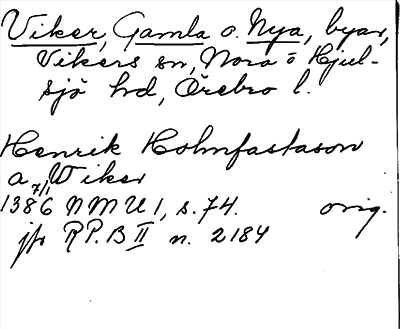 Viker, Gamla o. Nya, byar,
Vikers sn, Nora o Hjul-
sjö hd, Örebro l.
Henrik Holmfastason
a Wiker
1386 7/1 NMU 1, s. 74. orig.
jfr RP. B II n. 2184